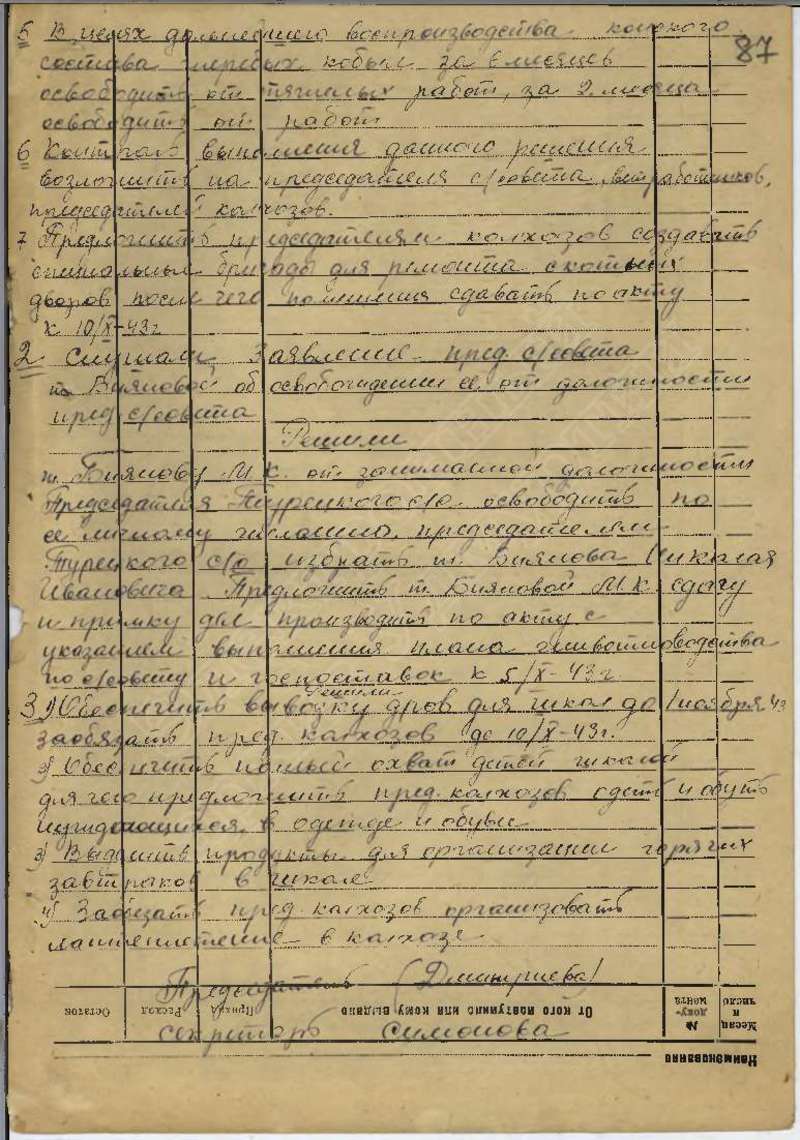 87
5 В целях дальнейшего воспроизводства конского
состава жеребых кобыл за 6 месяцев
освободить от тяжелых работ, за 2 месяца
освободить от работ
6 Контроль выполнения данного решения
возложить на председателя с/совета, ветработников,
председателей колхозов.
7 Предложить председателям колхозов создавать
специальные бригады для ремонта скотных
дворов после чего помещения сдавать по акту
к 10/X-43г
2 Слушали Заявление пред. с/совета
т. Бияновой об освобождении ее от должности
пред с/совета
Решили
т. Биянову М.К. от занимаемой должности
Председателя Турецкого с/с освободить по
ее личному желанию, председателем
Турецкого с/с избрать т. Биянова Николая
Ивановича. Предложить т. Бияновой М.К. сдачу
и приемку дел производить по акту с
указанием выполнения плана животноводства
по с/совету и госпоставок к 5/X-43г.
Решили
3 1) Обеспечить вывозку дров для школ до 1 ноября 43
заобязать пред. колхозов до 10/X-43г.
2) Обеспечить полный охват детей школой
для чего предложить пред. колхозов одеть и обуть
нуждающихся в одежде и обуви
3) Выделить продукты для организации горячих
завтраков в школе
4) Заобязать пред. колхозов организовать
лаптеплетение в колхозе
Председатель (Дмитриева)
Остаток Расход Приход От кого поступило или кому выдано № документа Месяц и число
секретарь Симонова
Наименование